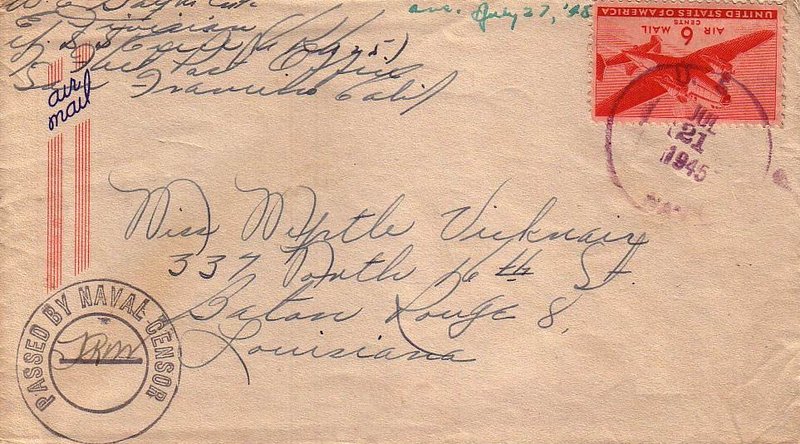 Division
Fleet Post Office
San Francisco Calif
ans. July 27, '45
air
mail
UNITED STATES OF AMERICA
6 CENTS
AIR MAIL
JUL
21
1945
Miss Myrtle Vicknair
337 North 16th St.
Baton Rouge 8,
Louisiana
PASSED BY NAVAL CENSOR
JRM